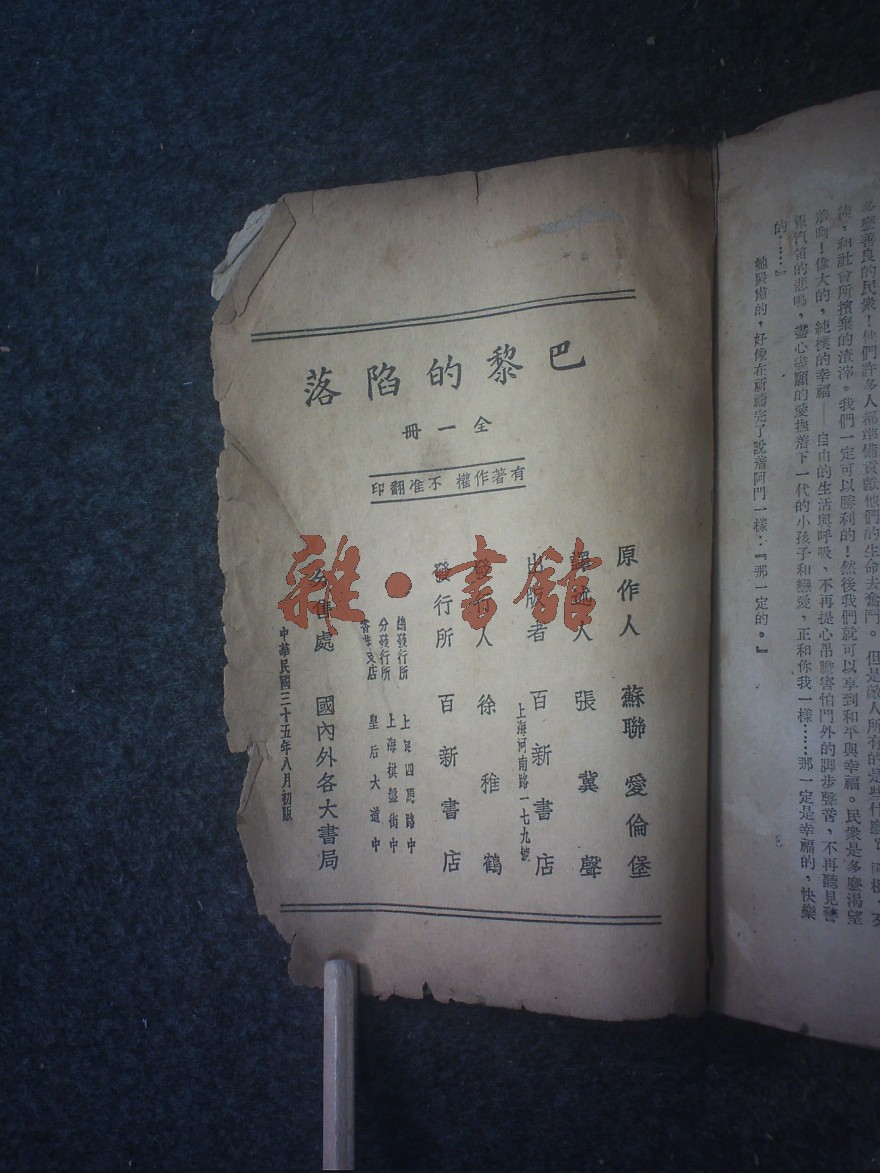 多麼善良的民衆！他們許多人都準備貢獻他們的生命去奮鬥。但是敵人所有的是些什麼
徒，和社會所擯棄的渣滓。我們一定可以勝利的！然後我們就可以享到和平與幸福。民衆是多麼渴望
着啊！偉大的，純樸的幸福——自由的生活與呼吸，不再提心吊膽害怕門外的脚步聲音，不再聽見警
報汽笛的悲鳴，盡心盡願的愛撫着下一代的小孩子和戀愛，正和你我一樣……那一定是幸福的，快樂
的……』
她嚴肅的，好像在祈禱完了說着阿門一樣：『那一定的。』
巴黎的陷落
全一冊
有著作權 不准翻印
原作人 蘇聯 愛倫堡
譯述人 張冀聲
出版者 百新書店
上海河南路一七九號
發行人 徐稚鶴
發行所 百新書店
總發行所 上海四馬路中
分發行所 上海棋盤街中
香港支店 皇后大道中
分售處 國內外各大書局
中華民國三十五年八月初版
雜·書館